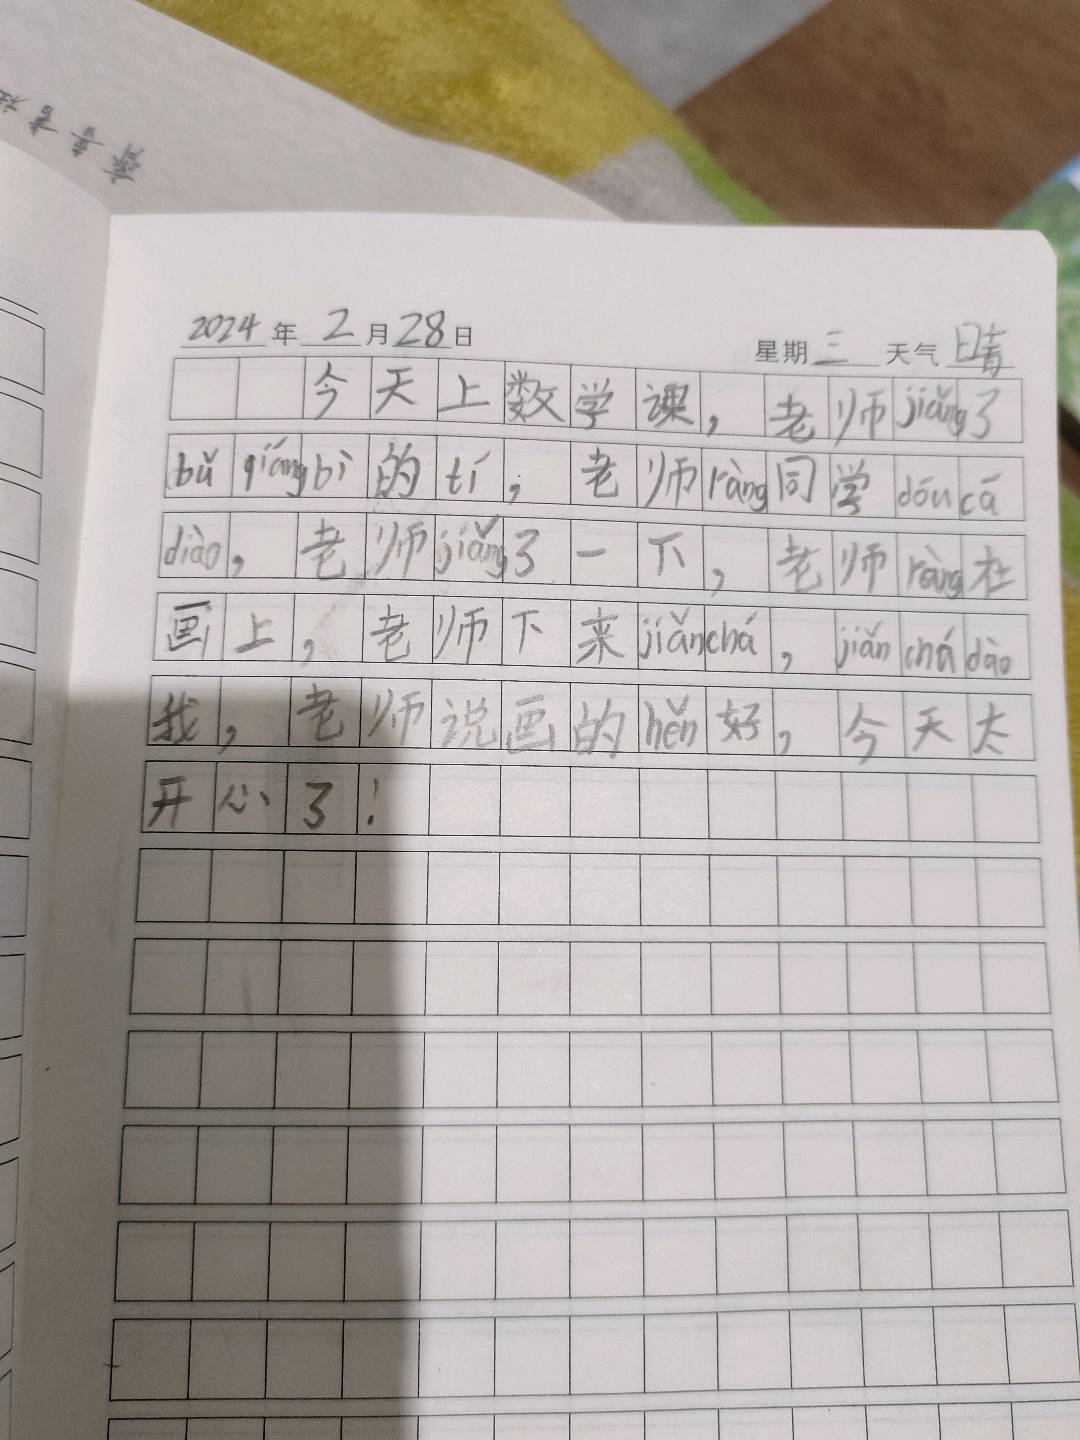 2024年2月28日 星期三 天气晴
今天上数学课，老师jiǎng了
bǔ qiáng bì的tí，老师ràng同学dōu cā
diào，老师jiǎng了一下，老师ràng在
画上，老师下来jiǎn chá，jiǎn chá dào
我，老师说画的hěn好，今天太
开心了！